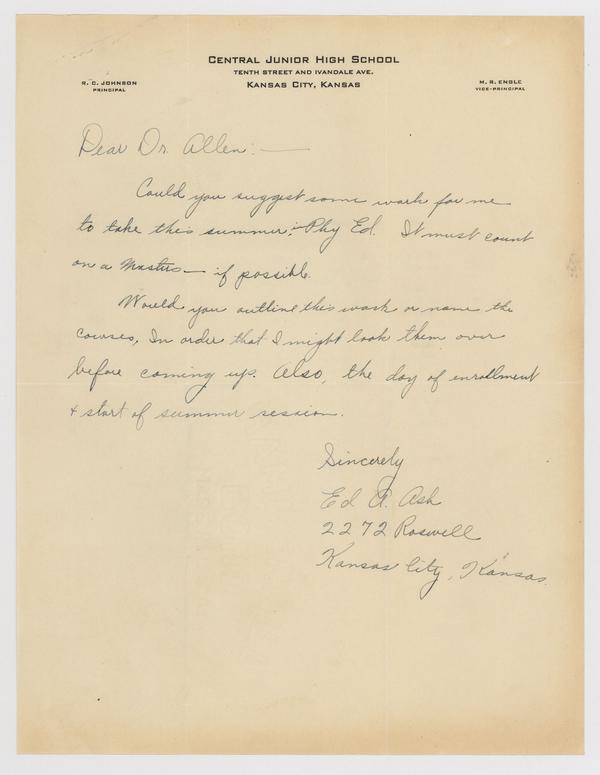 CENTRAL JUNIOR HIGH SCHOOL
TENTH STREET AND IVANDALE AVE.
KANSAS CITY, KANSAS
R. C. JOHNSON
PRINCIPAL
M. R. ENGLE
VICE-PRINCIPAL
Dear Dr. Allen: —
Could you suggest some work for me
to take this summer: Phy Ed. It must count
on a Masters — if possible.
Would you outline this work or name the
courses, In order that I might look them over
before coming up. Also, the day of enrollment
+ start of summer session.
Sincerely
Ed A. Ash
2272 Roswell
Kansas City, Kansas.